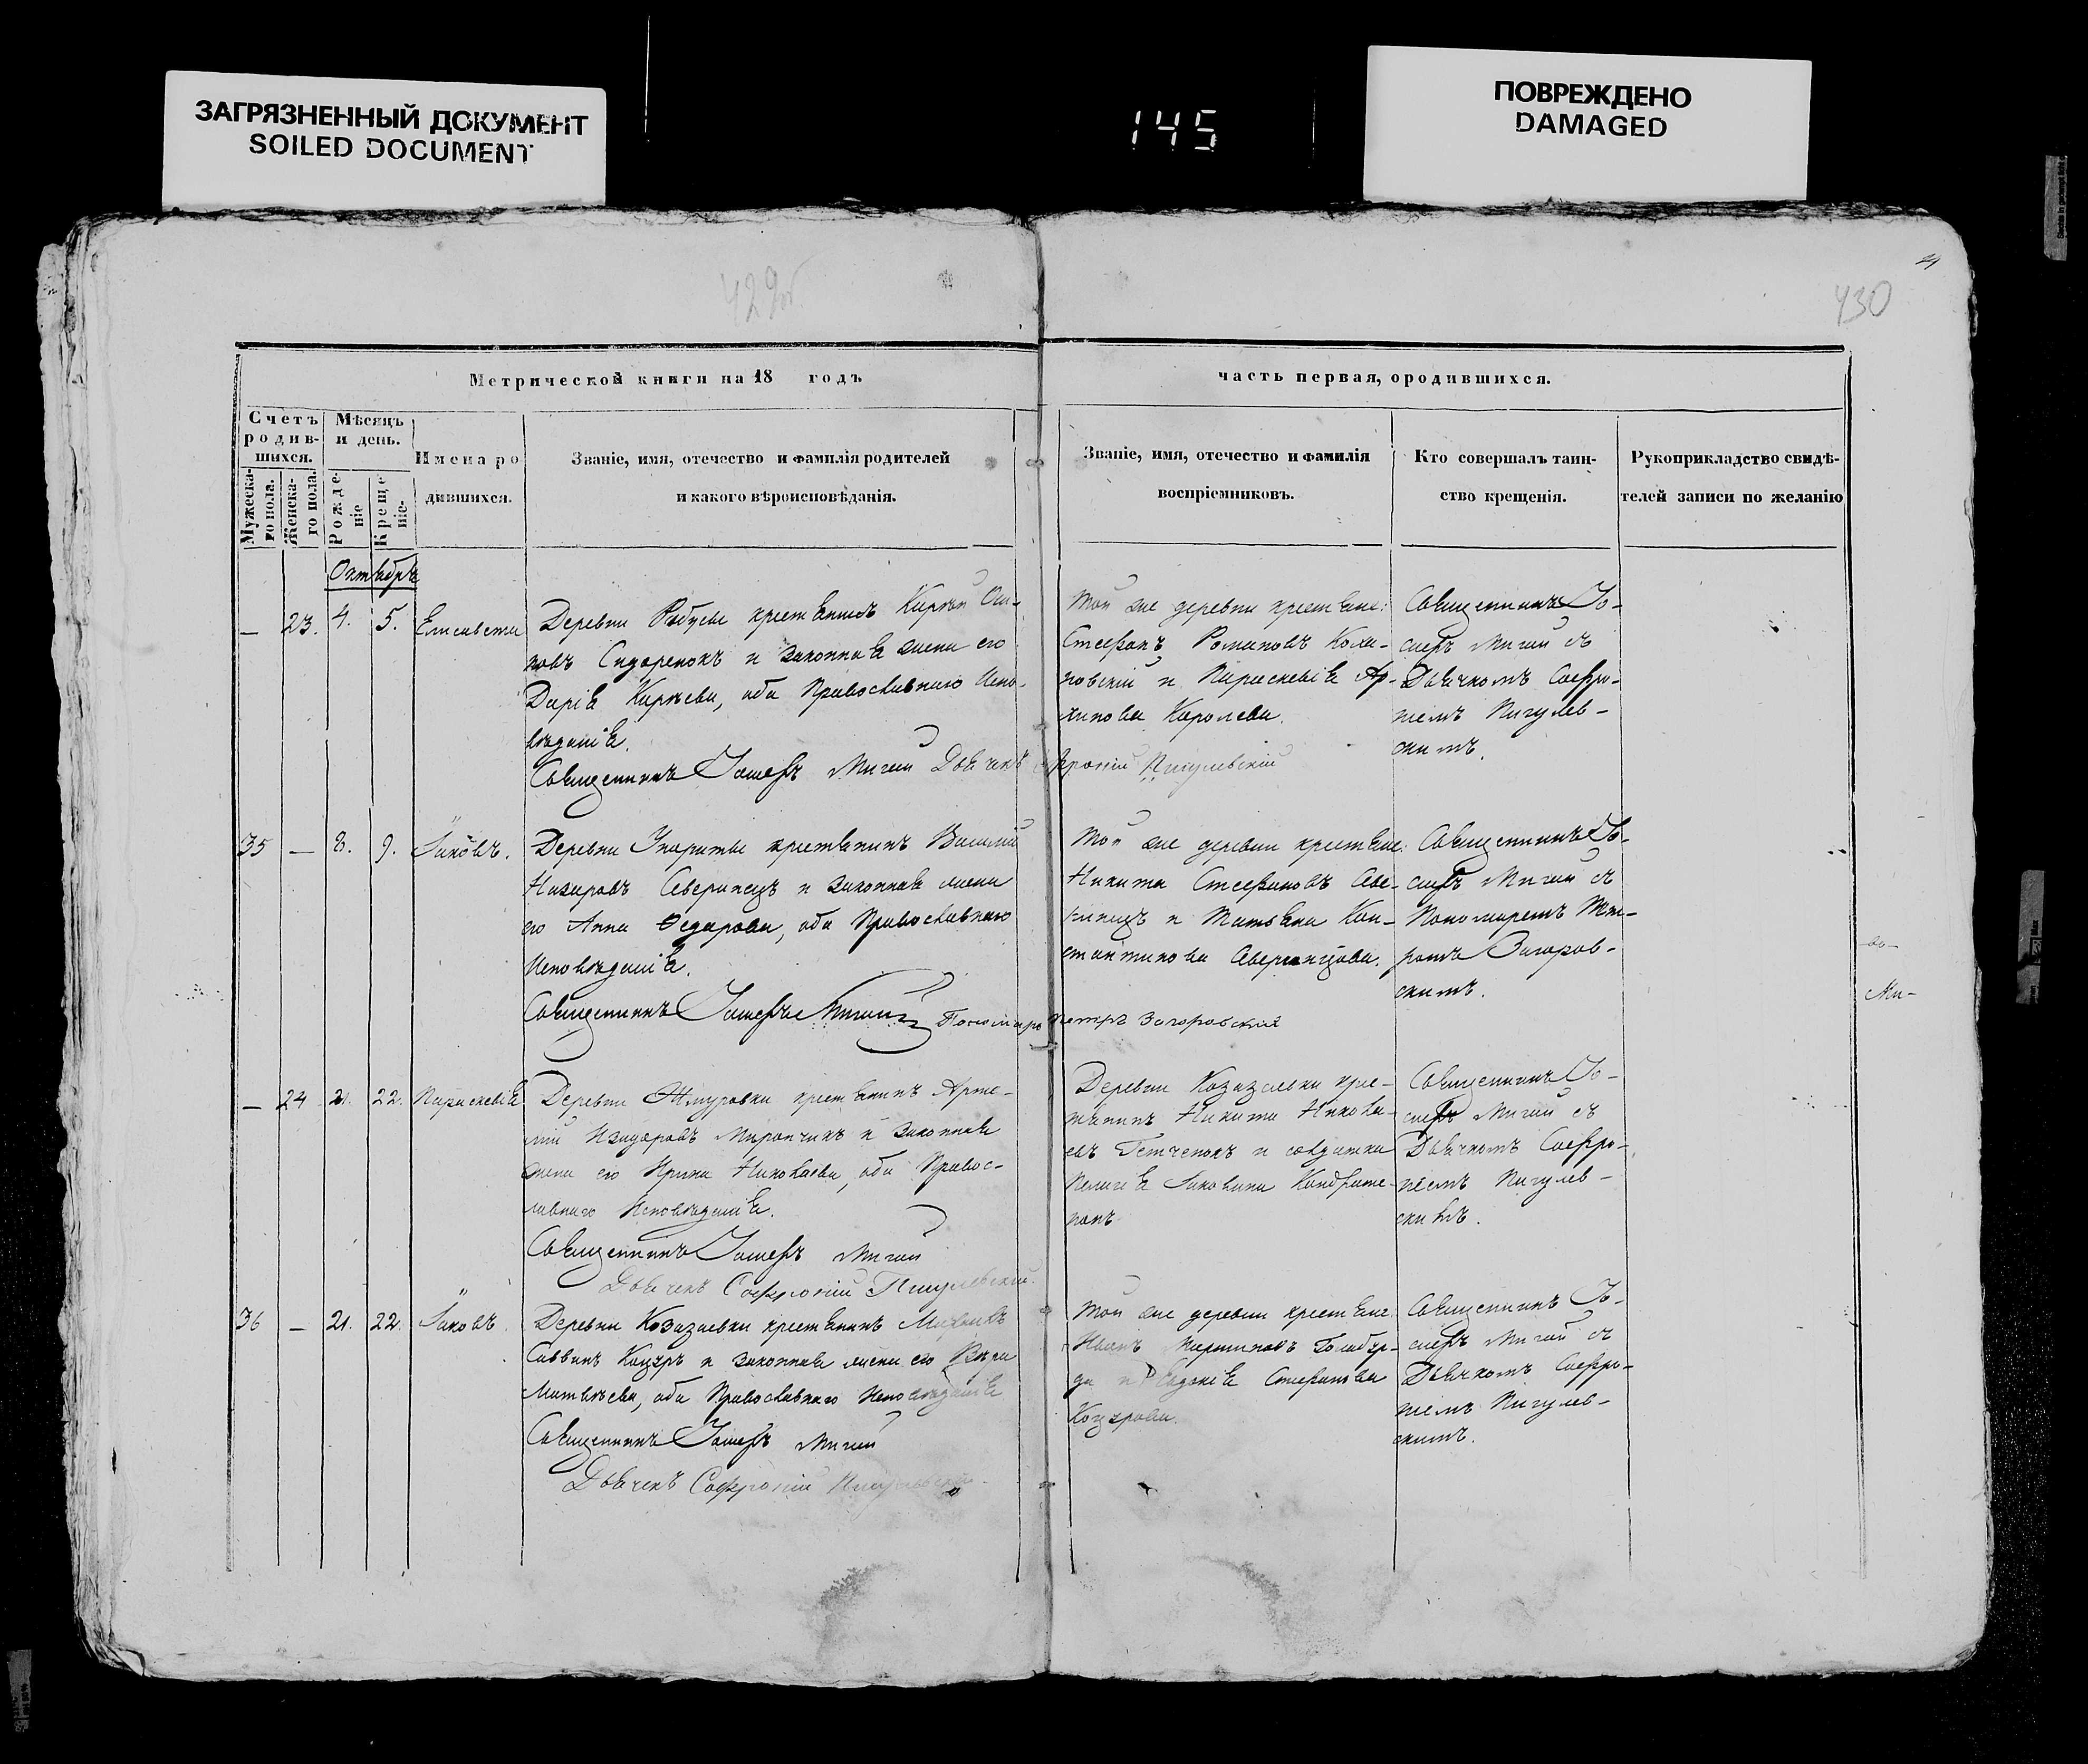 ЗАГРЯЗНЕННЫЙ ДОКУМЕНТ
SOILED DOCUMENT
145
ПОВРЕЖДЕНО
DAMAGED
429об
430
Метрической книги на 18 годъ
часть первая, ородившихся.
Счетъ родив-шихся.
Мужеска-го пола.
Женска-го пола.
Мѣсяцъ и день.
Рожде-ніе
Креще-ніе.
Имена родившихся.
Званіе, имя, отечество и фамилія родителей
и какого вѣроисповѣданія.
Званіе, имя, отечество и фамилія
воспріемниковъ.
Кто совершалъ таин-
ство крещенія.
Рукоприкладство свидѣ-
телей записи по желанію
Октябрь
— 23. 4. 5. Елисавета
Деревни Рабусы крестьянинъ Кирѣй Оси-
повъ Сидоренокъ и законная жена его
Дарія Карпова, оба Православнаго Испо-
вѣданія.
Священникъ Іосифъ Мигай Дьячекъ Софроній Пигулевскій
Той же деревни крестьяне:
Стефанъ Романовъ Кома-
ровскій и Параскевія Ар-
хипова Королева.
Священникъ Іо-
сифъ Мигай съ
Дьячкомъ Софро-
ніемъ Пигулев-
скимъ.
35 — 8. 9. Іаковъ.
Деревни крестьянинъ Василій
Назаровъ Аверинецъ и законная жена
его Анна Ѳедорова, оба Православнаго
Исповѣданія.
Священникъ Іосифъ Мигай Пономарь Петръ Загоровскій
Той же деревни крестьяне:
Никита Стефановъ Аве-
ринецъ и Татьяна Кон-
стантинова Аверинцова.
Священникъ Іо-
сифъ Мигай съ
Пономаремъ Пет-
ромъ Загоров-
скимъ.
— 24 21. 22. Параскевія
Деревни Жмуровки крестьянинъ Арте-
мій Изидоровъ Мирончикъ и законная
жена его Ирина Николаева, оба Правос-
лавнаго Исповѣданія.
Священникъ Іосифъ Мигай
Дьячекъ Софроній Пигулевскій.
Деревни Козазаевки крес-
тьянинъ Никита Никола-
евъ Гетченокъ и солдатка
Пелагія Яковлева Кондрате-
нокъ
Священникъ Іо-
сифъ Мигай съ
Дьячкомъ Софро-
ніемъ Пигулев-
скимъ.
36 — 21. 22. Іаковъ.
Деревни Козазаевки крестьянинъ Михаилъ
Саввинъ Коцуръ и законная жена его Вѣра
Матвѣева, оба Православнаго Исповѣданія
Священникъ Іосифъ Мигай
Дьячекъ Софроній Пигулевскій.
Той же деревни крестьяне:
Иванъ Мартиновъ
и Евдокія Стефанова
Коцурова.
Священникъ Іо-
сифъ Мигай съ
Дьячкомъ Софро-
ніемъ Пигулев-
скимъ.
Ми-